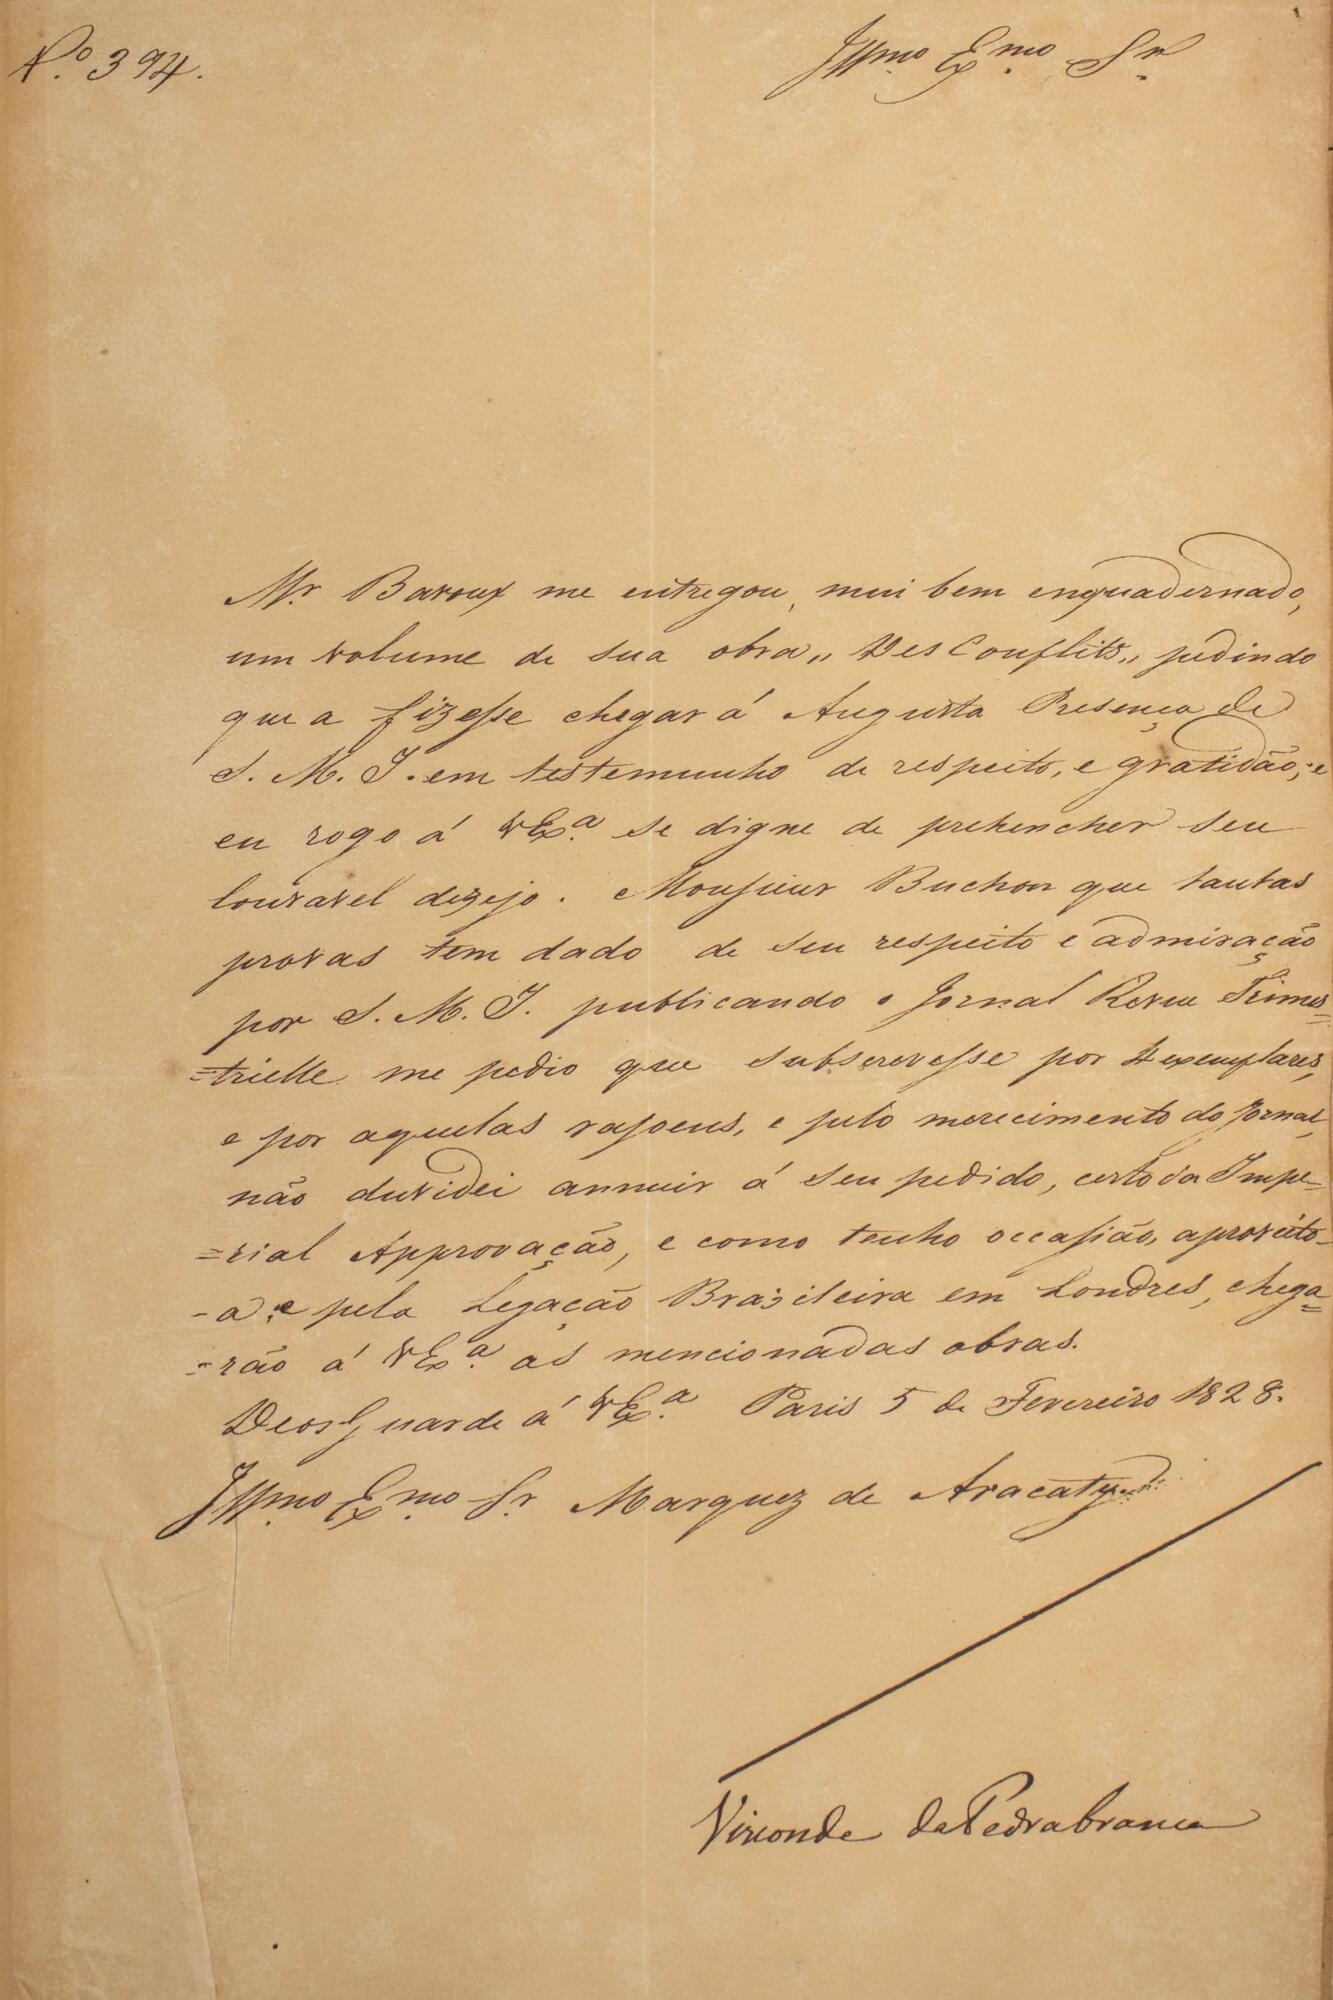 N.º 394.
Illmo. Exmo. Sr.
Mr. Baroux me entregou, mui bem enquadernado,
um volume de sua obra „ Des Conflits „ pedindo
que a fizesse chegar á Augusta Presença de
S. M. I. em testemunho de respeito, e gratidão, e
eu rogo á VExª. se digne de prehencher seu
louvavel dezejo. Monsieur Buchon que tantas
provas tem dado de seu respeito e admiração
por S. M. I. publicando o Jornal Revue Trimes=
=trielle me pedio que subscrevesse por 4 exemplares,
e por aquelas rasoens, e pelo merecimento do Jornal,
não duvidei annuir á seu pedido, certo da Impe-
=rial Approvação, e como tenho occasião, aproveito-
-a; e pela Legação Brasileira em Londres, chega=
=rão á VExª. as mencionadas obras.
Deos Guarde á VExª. Paris 5 de Fevereiro 1828.
Illmo. Exmo. Sr. Marquez de Aracaty
Visconde da Pedrabranca